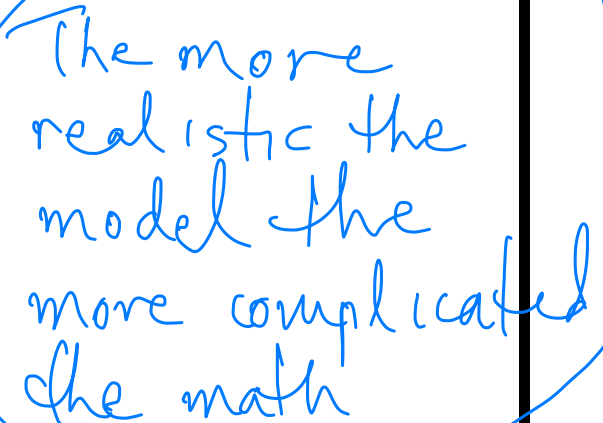 The more
realistic the
model the
more complicated
the math